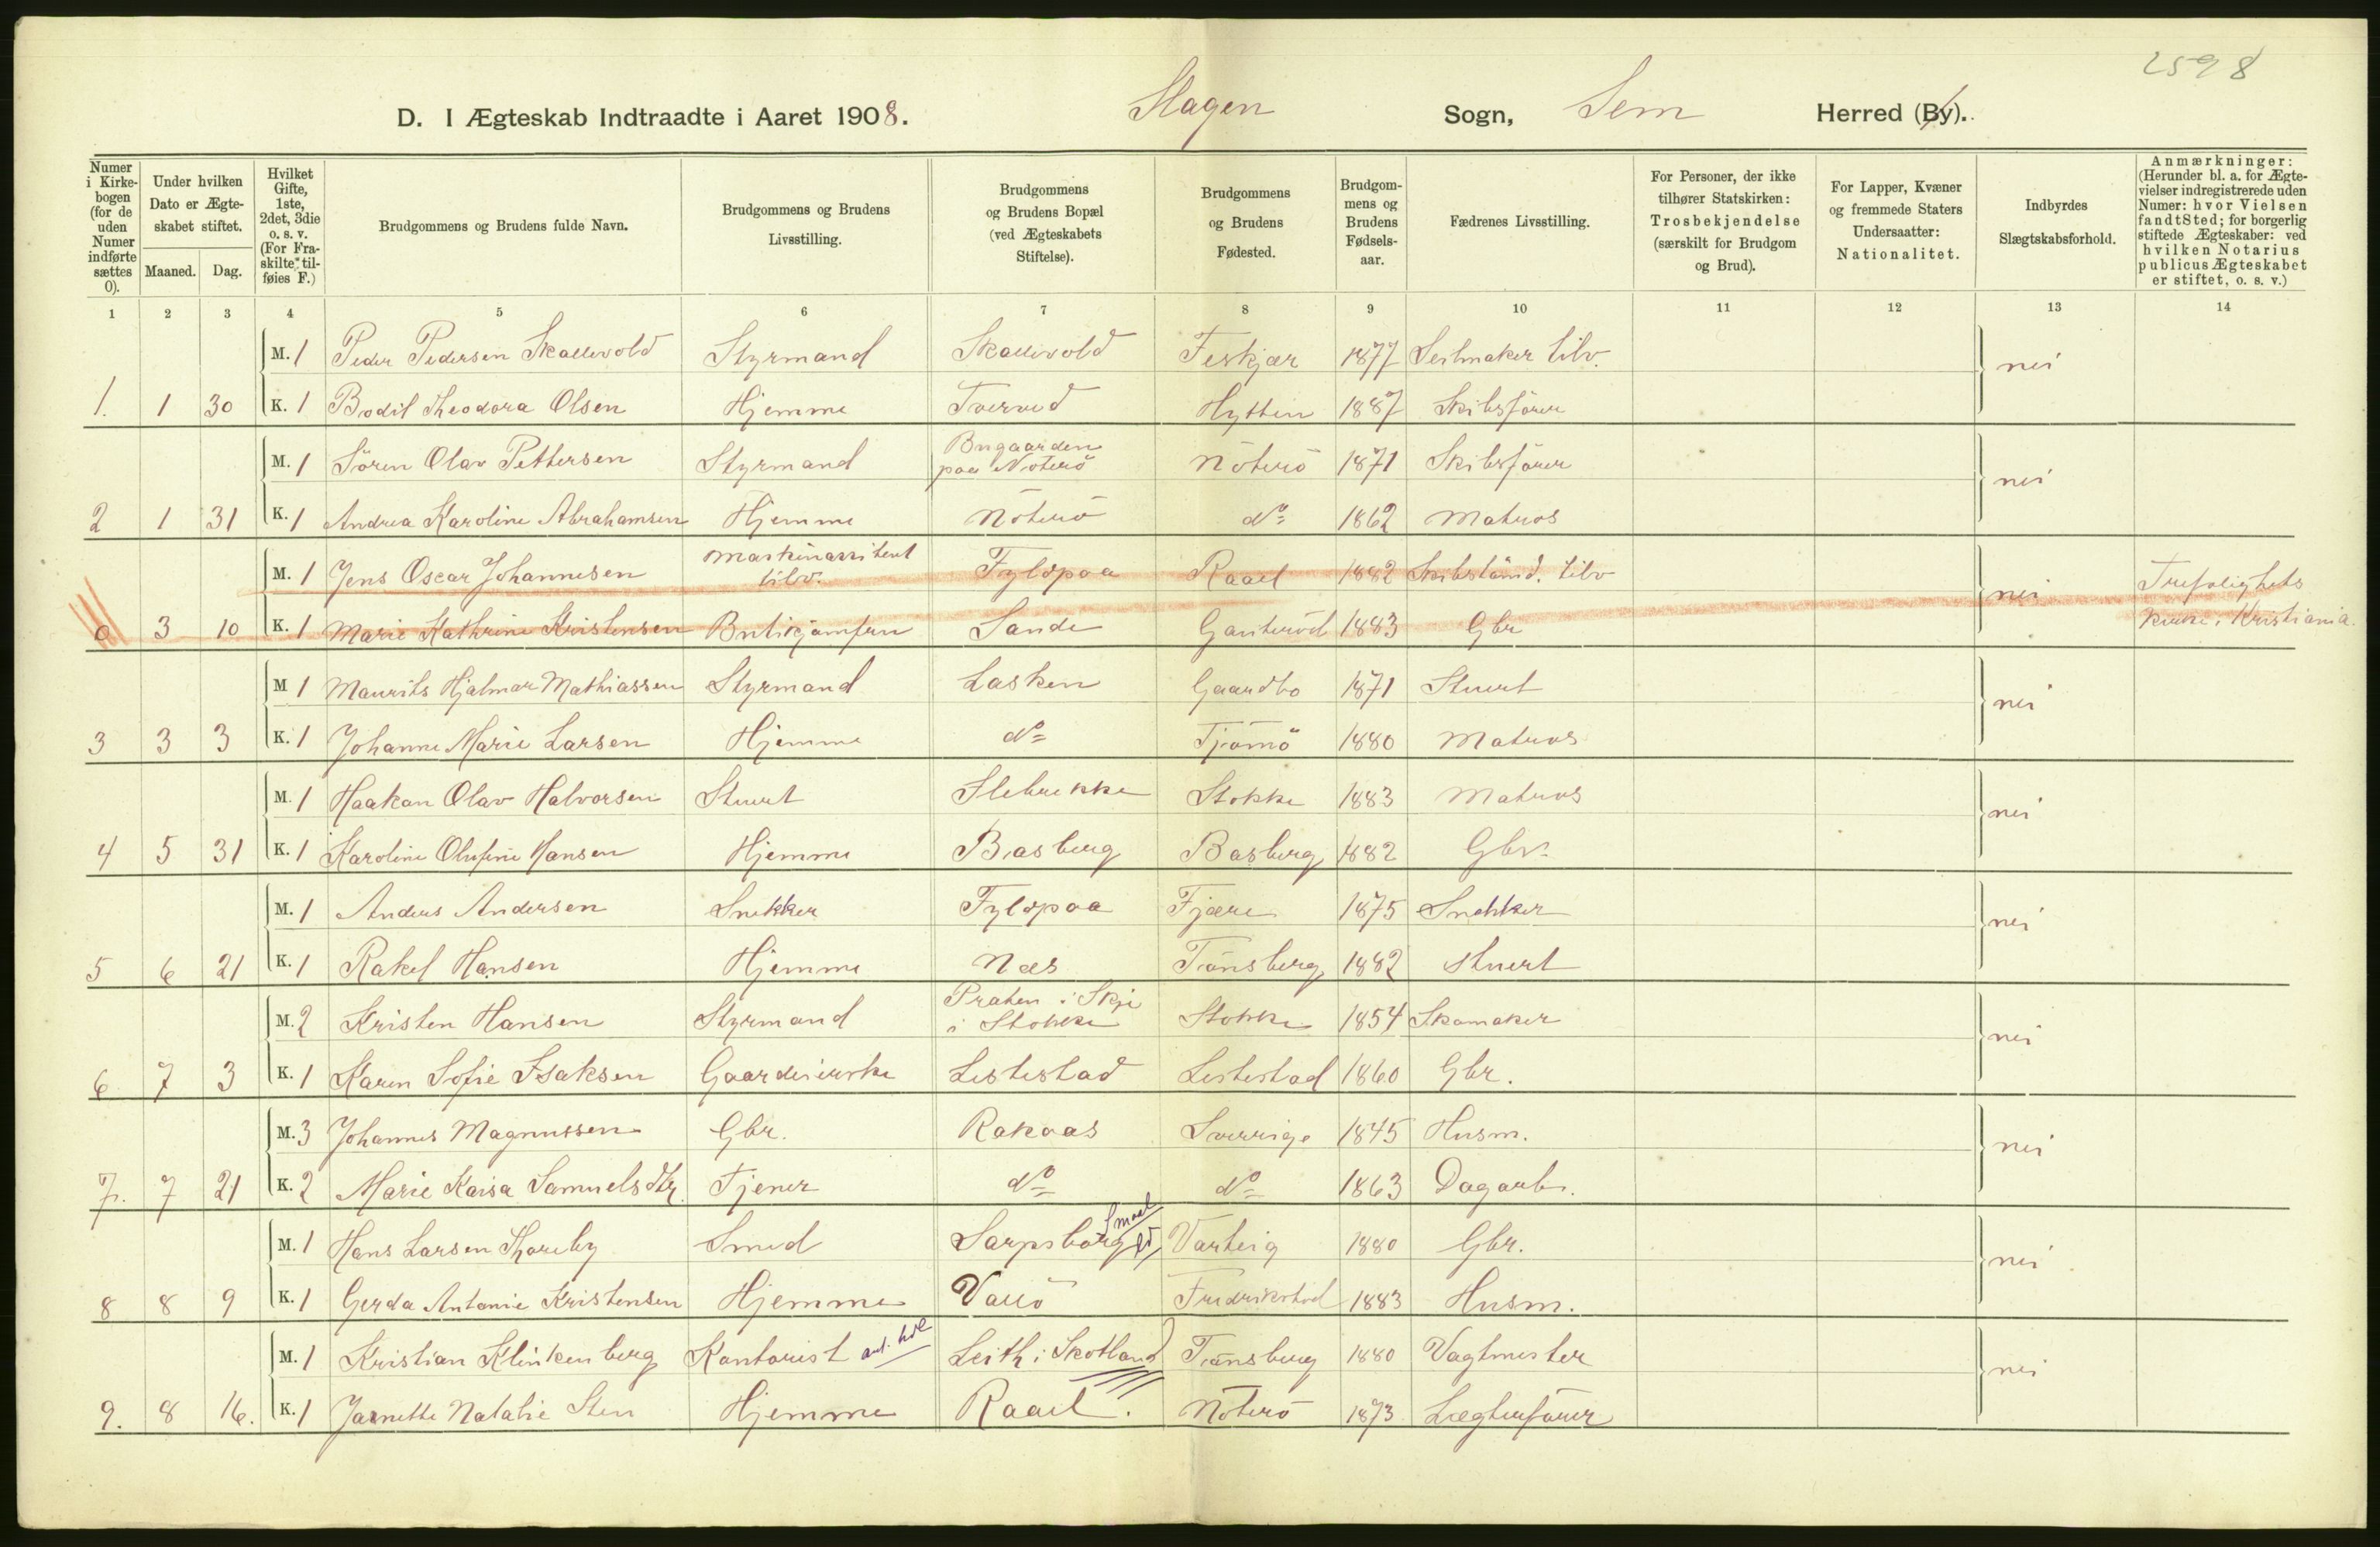 2598
D. I Ægteskab Indtraadte i Aaret 1908. Slagen Sogn, Sem Herred (By).
Numer i Kirkebogen (for de uden Numer indførte sættes 0).
Under hvilken Dato er Ægteskabet stiftet.
Maaned. Dag.
Hvilket Gifte, 1ste, 2det, 3die o. s. v. (For Fraskilte tilføies F.)
Brudgommens og Brudens fulde Navn.
Brudgommens og Brudens Livsstilling.
Brudgommens og Brudens Bopæl (ved Ægteskabets Stiftelse).
Brudgommens og Brudens Fødested.
Brudgommens og Brudens Fødselsaar.
Fædrenes Livsstilling.
For Personer, der ikke tilhører Statskirken: Trosbekjendelse (særskilt for Brudgom og Brud).
For Lapper, Kvæner og fremmede Staters Undersaatter: Nationalitet.
Indbyrdes Slægtskabsforhold.
Anmærkninger: (Herunder bl. a. for Ægtevielser indregistrerede uden Numer: hvor Vielsen fandt Sted; for borgerlig stiftede Ægteskaber: ved hvilken Notarius publicus Ægteskabet er stiftet, o. s. v.)
1 2 3 4 5 6 7 8 9 10 11 12 13 14
M. 1 Peder Pedersen Skallevold Styrmand Skallevold Feskjær 1877 Seilmaker tilv. nei
1. 1 30 K. 1 Bodil Theodora Olsen Hjemme Tverved Hytten 1887 Skibsfører
M. 1 Sören Olav Pettersen Styrmand Brygaarden paa Nöterö Nöterö 1871 Skibsfører nei
2 1 31 K. 1 Andrea Karoline Abrahamsen Hjemme Nöterö do 1862 Matros
M. 1 Jens Oscar Johannesen Maskinassistent tilv. Fylpaa Raael 1882 Skibstömd. tilv nei Trefolighets
0 3 10 K. 1 Marie Kathrine Kristensen Butikjomfru Sande Ganteröd 1883 Gbr Kirke i Kristiania.
M 1 Maurits Hjalmar Mathiassen Styrmand Lasken Gaardbo 1871 Stuert nei
3 3 3 K. 1 Johanne Marie Larsen Hjemme do Tjömö 1880 Matros
M. 1 Haakan Olav Halvorsen Stuert Slebrekke Stokke 1883 Matros nei
4 5 31 K. 1 Karoline Olufine Hansen Hjemme Basberg Basberg 1882 Gbr.
M. 1 Anders Andersen Snekker Fylpaa Fjære 1875 Snekker nei
5 6 21 K. 1 Rakel Hansen Hjemme Næs Tönsberg 1882 Stuert
M. 2 Kristen Hansen Styrmand Praten i Skje i Stokke Stokke 1854 Skomaker nei
6 7 3 K. 1 Karen Sofie Isaksen Gaardeierske Listestad Listestad 1860 Gbr.
M. 3 Johannes Magnussen Gbr. Rakaas Sverrige 1845 Husm. nei
7. 7 21 K. 2 Marie Kaisa Samuelsdtr. Tjener do do 1863 Dagarb.
M. 1 Hans Larsen Thoreby Smed Sarpsborg Smaal Varteig 1880 Gbr. nei
8 8 9 K. 1 Gerda Antonie Kristensen Hjemme Vallö Fredrikstad 1883 Husm.
M. 1 Kristian Klinkenberg Kontorist Leith i Skotland Tönsberg 1880 Vagtmester nei
9. 8 16. K. 1 Jarnette Natalie Sten Hjemme Raael. Nöterö 1873 Lægterfører